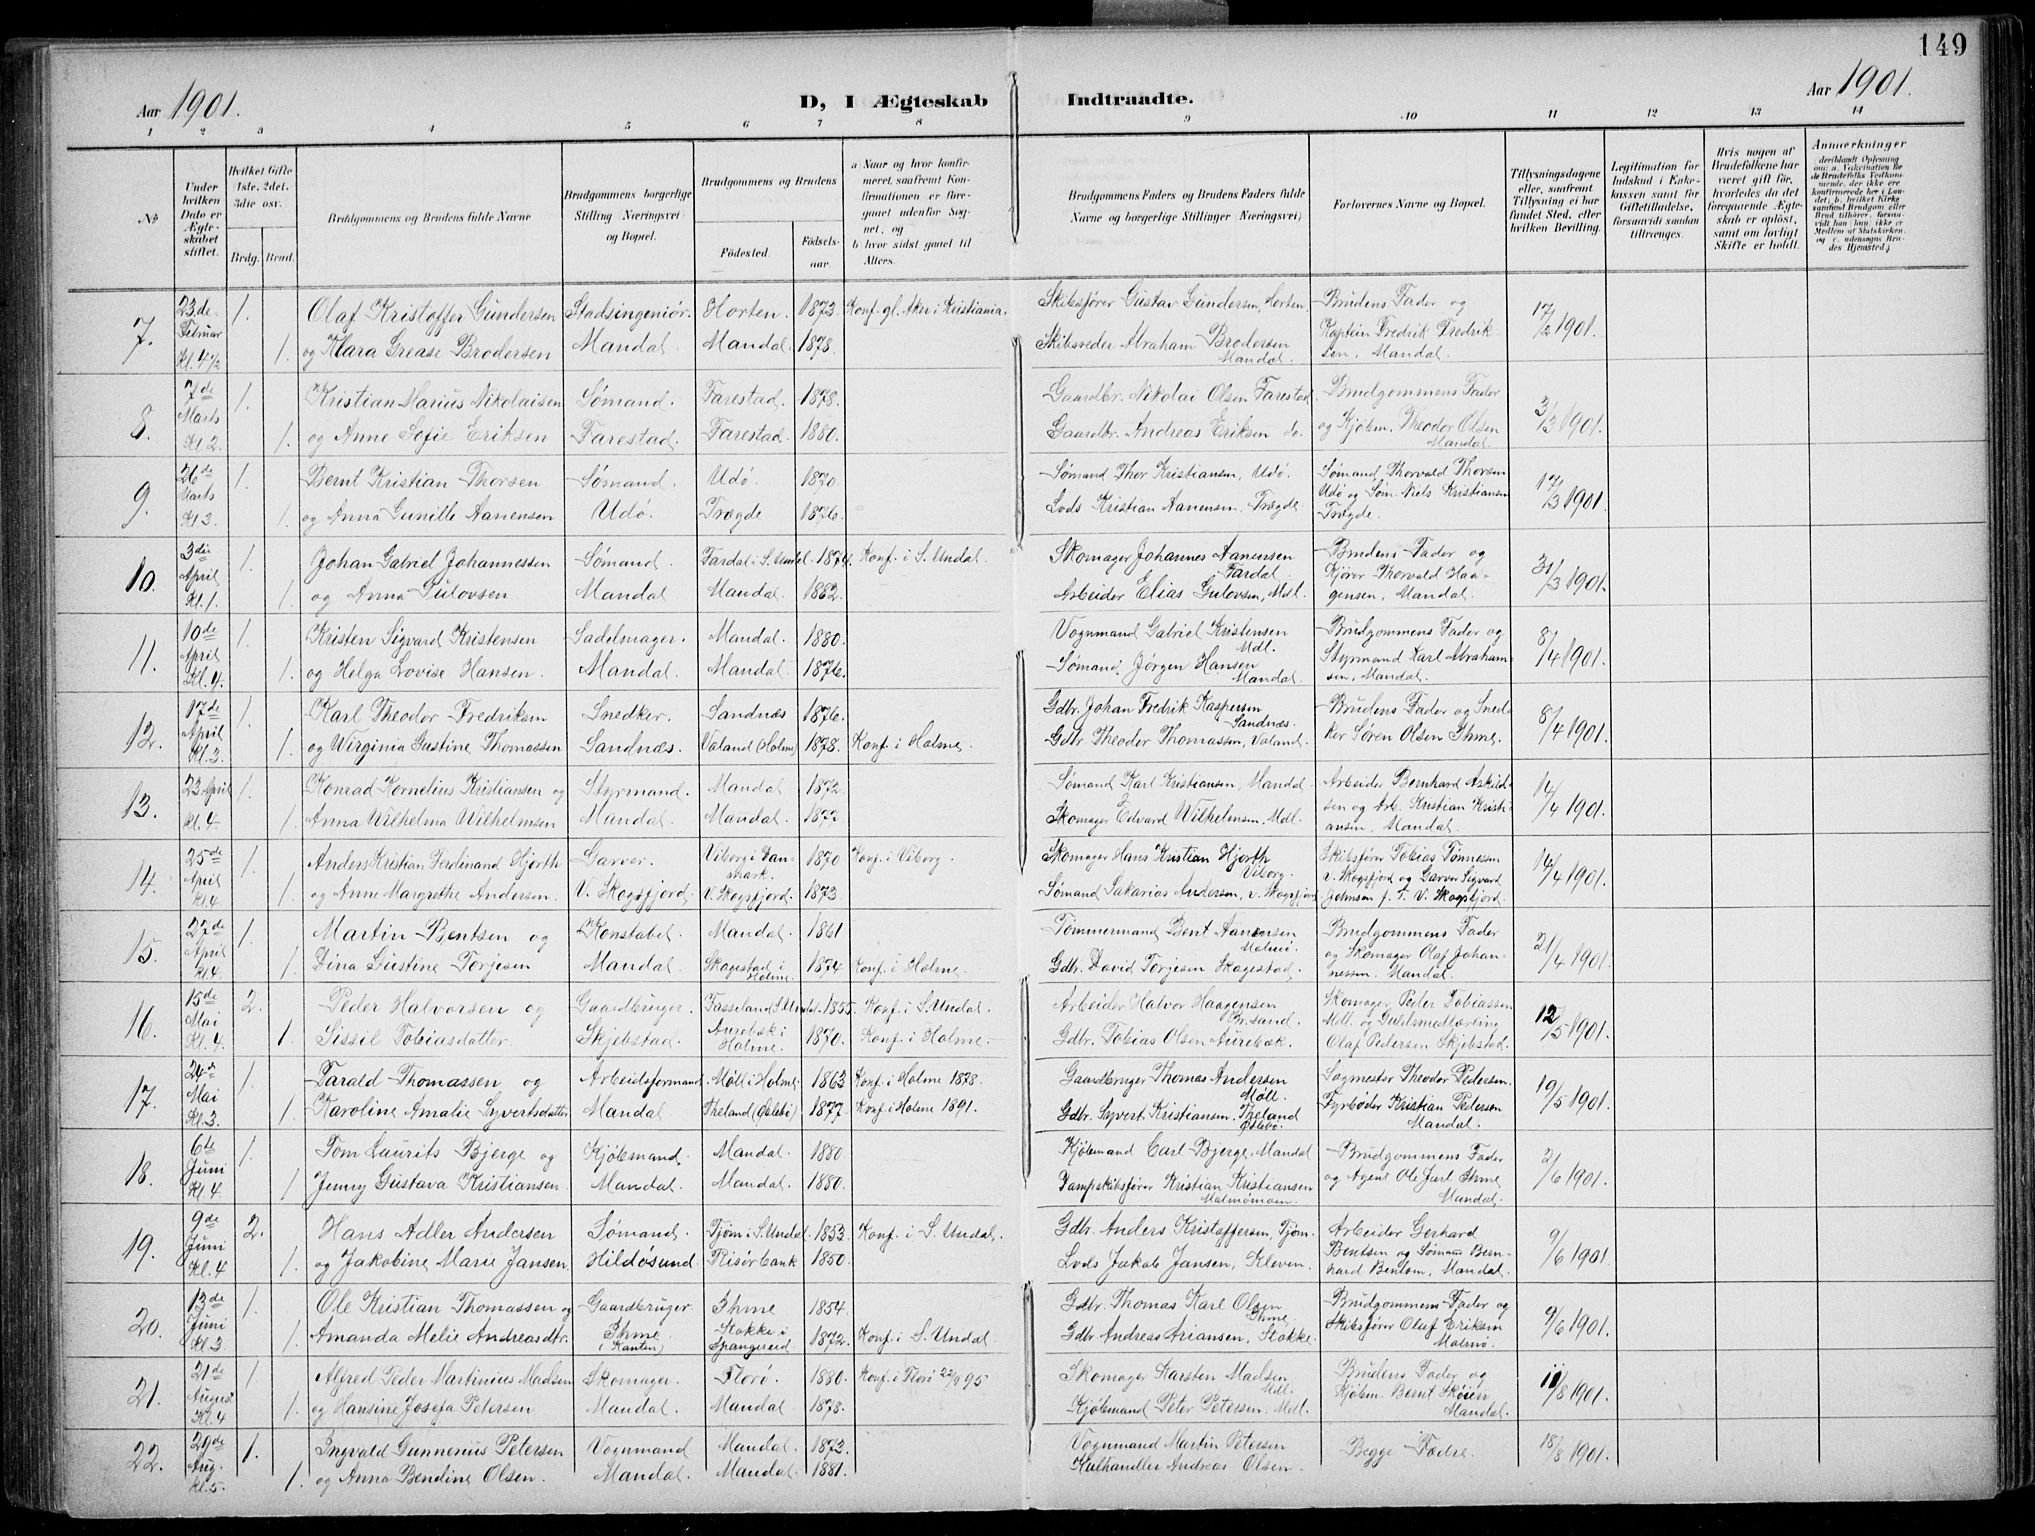 149
Aar 1901.
D, I Ægteskab Indtraadte.
Aar 1901.
1 2 3 4 5 6 7 8 9 10 11 12 13 14
No
Under hvilken Dato er Ægteskabet stiftet.
Hvilket Gifte 1ste, 2det, 3die osv.
Brdg. Brud.
Brudgommens og Brudens fulde Navne
Brudgommens borgerlige Stilling Næringsvei og Bopæl.
Brudgommens og Brudens
Fødested. Fødselsaar.
a Naar og hvor konfirmeret, saafremt Konfirmationen er foregaaet udenfor Sognet, og
b hvor sidst gaaet til Alters.
Brudgommens Faders og Brudens Faders fulde Navne og borgerlige Stillinger Næringsvei,
Forlovernes Navne og Bopæl.
Tillysningsdagene eller, saafremt Tillysning ei har fundet Sted, efter hvilken Bevilling.
Legitimation for Indskud i Enkekassen samt for Giftetilladelse, forsaavidt saadan tiltrænges.
Hvis nogen af Brudefolkene har været gift før, hvorledes da det foregaaende Ægteskab er opløst, samt om lovligt Skifte er holdt.
Anmærkninger
7. 23de Februar Kl. 4½ 1. 1. Olaf Kristoffer Gundersen Stadsingeniør. Horten. 1873 Konf. gl. Aker i Kristiania. Skibsfører Gustav Gundersen, Horten. Brudens Fader og 17/2 1901.
og Klara Grease Brodersen Mandal. Mandal. 1878. Skibsreder Abraham Brodersen Mandal. Kaptein Fredrik Fredriksen, Mandal.
8. 7de Marts Kl. 2. 1. 1. Kristian Marius Nikolaisen Sømand. Farestad. 1878. Gaardbr. Nikolai Olsen Farestad. Brudgommens Fader 3/3 1901.
og Anne Sofie Eriksen Farestad. Farestad. 1880. Gaardbr. Andreas Eriksen do. og Kjøbm. Theodor Olsen Mandal.
9. 26de Marts Kl. 3. 1. 1. Bernt Kristian Thorsen Sømand. Udø. 1870. Sømand Thor Kristiansen, Udø. Sømand Thorvald Thorsen 17/3 1901.
og Anna Gunille Aanensen Udø. Trægde 1876. Lods Kristian Aanensen, Trægde. Udø og Søm. Niels Kristiansen Trægde.
10. 3die April Kl. 1. 1. 1. Johan Gabriel Johannessen Sømand. Fardal i S. Undal. 1874. Konf. i S. Undal. Skomager Johannes Aanensen Fardal. Brudens Fader og 31/3 1901.
og Anna Gulovsen Mandal. Mandal. 1882. Arbeider Elias Gulovsen, Mdl. Kjører Thorvald Haagensen, Mandal.
11. 10de April Kl. 4. 1. 1. Kristen Sigvard Kristensen Sadelmager. Mandal. 1880. Vognmand Gabriel Kristensen Mdl. Brudgommens Fader og 8/4 1901.
og Helga Lovise Hansen. Mandal. Mandal. 1876. Sømand Jørgen Hansen Mandal. Styrmand Karl Abrahamsen, Mandal.
12. 17de April Kl. 3. 1. 1. Karl Theodor Fredriksen Snedker. Sandnæs 1876. Gdbr. Johan Fredrik Kaspersen Sandnæs. Brudens Fader og Snedker 8/4 1901.
og Wirginia Gustine Thomassen Sandnæs. Valand (Holme) 1878. Konf. i Holme. Gdbr. Theodor Thomassen, Valand. Søren Olsen Ihme.
13. 23 April Kl. 4. 1. 1. Konrad Kornelius Kristiansen og Styrmand. Mandal. 1872. Sømand Karl Kristiansen, Mandal. Arbeider Bernhard Askildsen 14/4 1901.
Anna Wilhelma Wilhelmsen Mandal. Mandal. 1877. Skomager Edvard Wilhelmsen, Mdl. og Arb. Kristian Kristiansen, Mandal.
14. 25de April Kl. 4. 1. 1. Anders Kristian Ferdinand Hjorth Garver. Viborg i Danmark. 1870 Konf. i Viborg. Skomager Hans Kristian Hjorth Viborg. Skibsfører Tobias Tønnessen 14/4 1901.
og Anne Margrethe Andersen. V. Skogsfjord. V. Skogsfjord. 1873. Sømand Sakarias Andersen, v. Skogsfjord v. Skogsfjord og Garver Sigvard Johnsen f. T. V. Skogsfjord.
15. 27de April Kl. 4. 1. 1. Martin Bentsen og Konstabel. Mandal. 1861 Tømmermand Bent Aanensen Malmø. Brudgommens Fader 21/4 1901.
Dina Gustine Torjesen Mandal. Skagestad i Holme. 1874 Konf. i Holme. Gdbr. David Torjesen Skagestad. og Skomager Olaf Johannessen. Mandal.
16. 15de Mai Kl. 4. 2. 1. Peder Halvorsen og Gaardbruger. Fasseland S. Undal. 1855. Konf. i S. Undal. Arbeider Halvor Haagensen Kr.sand. Skomager Peder Tobiassen 12/5 1901.
Sissil Tobiasdatter. Skjebstad. Aurebæk i Holme. 1870. Konf. i Holme. Gdbr. Tobias Olsen Aurebæk. Mdl. og Guldsmedlærling Olaf Pedersen Skjebstad.
17. 24de Mai Kl. 3. 1. 1. Tarald Thomassen og Arbeidsformand. Møll i Holme. 1863 Konf. i Holme 1878. Gaardbruger Thomas Andersen Møll. Sagmester Theodor Pedersen. 19/5 1901.
Karoline Amalie Syvertsdatter Mandal. Theland (Øslebø) 1877. Konf. i Holme 1891. Gdbr. Syvert Kristiansen, Theland Øslebø. Fyrbøder Kristian Pedersen Mandal.
18. 6te Juni Kl. 4 1. 1 Tom Laurits Bjerge og Kjøbmand. Mandal. 1880 Kjøbmand Carl Bjerge, Mandal Brudgommens Fader 2/6 1901.
Jenny Gustava Kristiansen. Mandal. Mandal. 1880. Dampskibsfører Kristian Kristiansen Malmømoen. og Agent Ole Juel Ihme Mandal.
19. 9de Juni Kl. 4 2. 1. Hans Adler Andersen Sømand. Tjøm i S. Undal. 1853 Konf. i S. Undal. Gdbr. Anders Kristoffersen, Tjøm. Arbeider Gerhard 9/6 1901.
og Jakobine Marie Jansen Hildøsund. Risørbank 1850. Lods Jakob Jansen, Kleven. Bentsen og Sømand Bernhard Bentsen, Mandal.
20. 13de Juni Kl. 3 1. 1. Ole Kristian Thomassen og Gaardbruger Ihme 1854. Gdbr. Thomas Karl Olsen Ihme. Brudgommens Fader og 9/6 1901.
Amanda Melie Andreasdtr. Ihme (i Kanten) Stokke i Spangereid. 1872. Konf. i S. Undal. Gdbr. Andreas Ariansen, Stokke. Skibsfører Oluf Eriksen Malmø.
21. 21de August Kl. 4 1. 1. Alfred Peder Martinius Madsen Skomager. Florø. 1880. Konf. i Florø 22/9 95 Skomager Karsten Madsen Mdl. Brudens Fader og 11/8 1901.
og Hansine Josefa Petersen Mandal. Mandal 1878. Kjøbmand Peter Petersen, Mdl. Kjøbm. Bernt Skøien Mandal.
22. 29de Aug. Kl. 5. 1. 1. Ingvald Gunnerius Petersen Vognmand Mandal. 1873. Vognmand Martin Petersen Begge Fædre. 18/8 1901.
og Anna Bendine Olsen. Mandal. Mandal. 1881. Kulhandler Andreas Olsen.